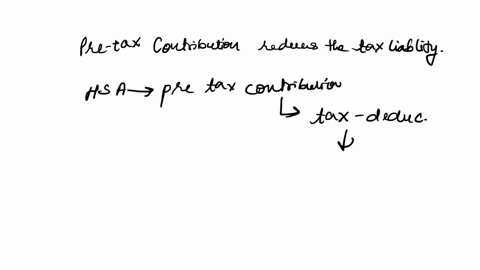 Pre-tax Contribution reduces the tax liablity.
HSA → pre tax contribution
↳ tax-deduc.
↓